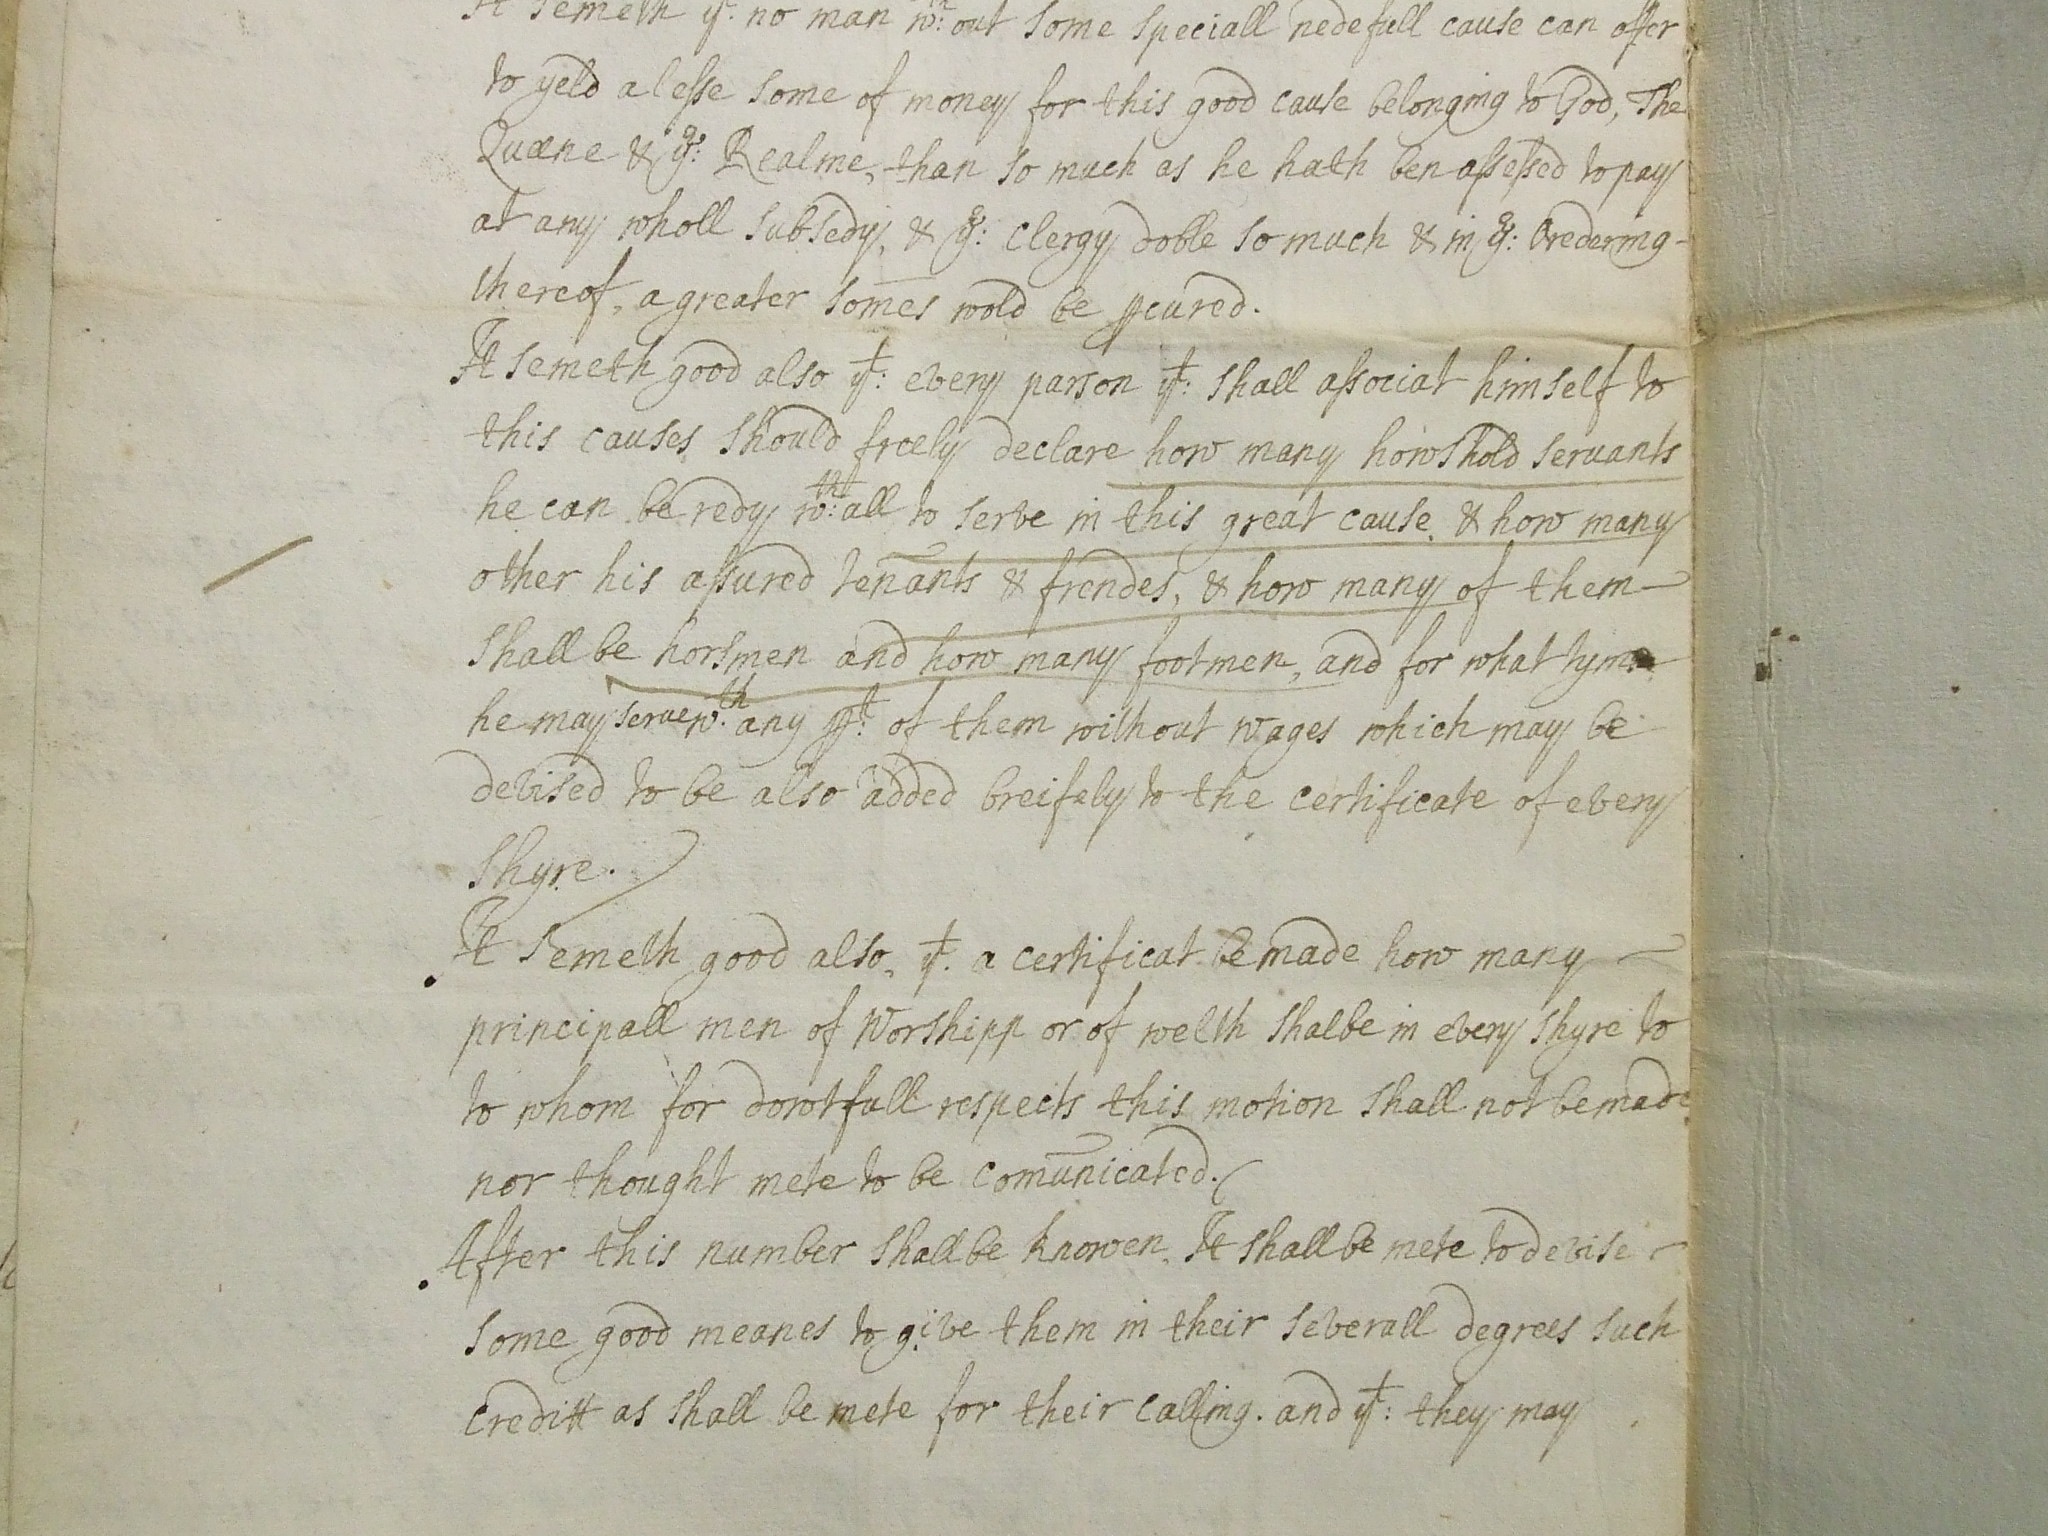 It semeth yt. no man wth: out some speciall nedefull cause can offer
to yeld a lesse some of money for this good cause belonging to God, The
Quæne & ye: Realme, than so much as he hath ben assessed to pay
at any wholl subsedy, & ye: Clergy doble so much & in ye: Oredering
thereof, a greater somes wold be pcured.
It semeth good also yt: every parson yt: shall associat himself to
this causes should freely declare how many howshold servants
he can be redy wth: all to serve in this great cause, & how many
other his assured tenants & frendes, & how many of them
shall be horsmen and how many footmen, and for what tyme
he may serue wth. any pt: of them without wages which may be
devised to be also added breifely to the certificate of every
Shyre.
It semeth good also, yt. a certificat be made how many
principall men of Worshipp or of welth shalbe in every shyre to
to whom for dowtfull respects this motion shall not be made
nor thought mete to be comunicated.
After this number shall be knowen, It shall be mete to devise
some good meanes to give them in their severall degrees such
Creditt as shall be mete for their calling. and yt: they may